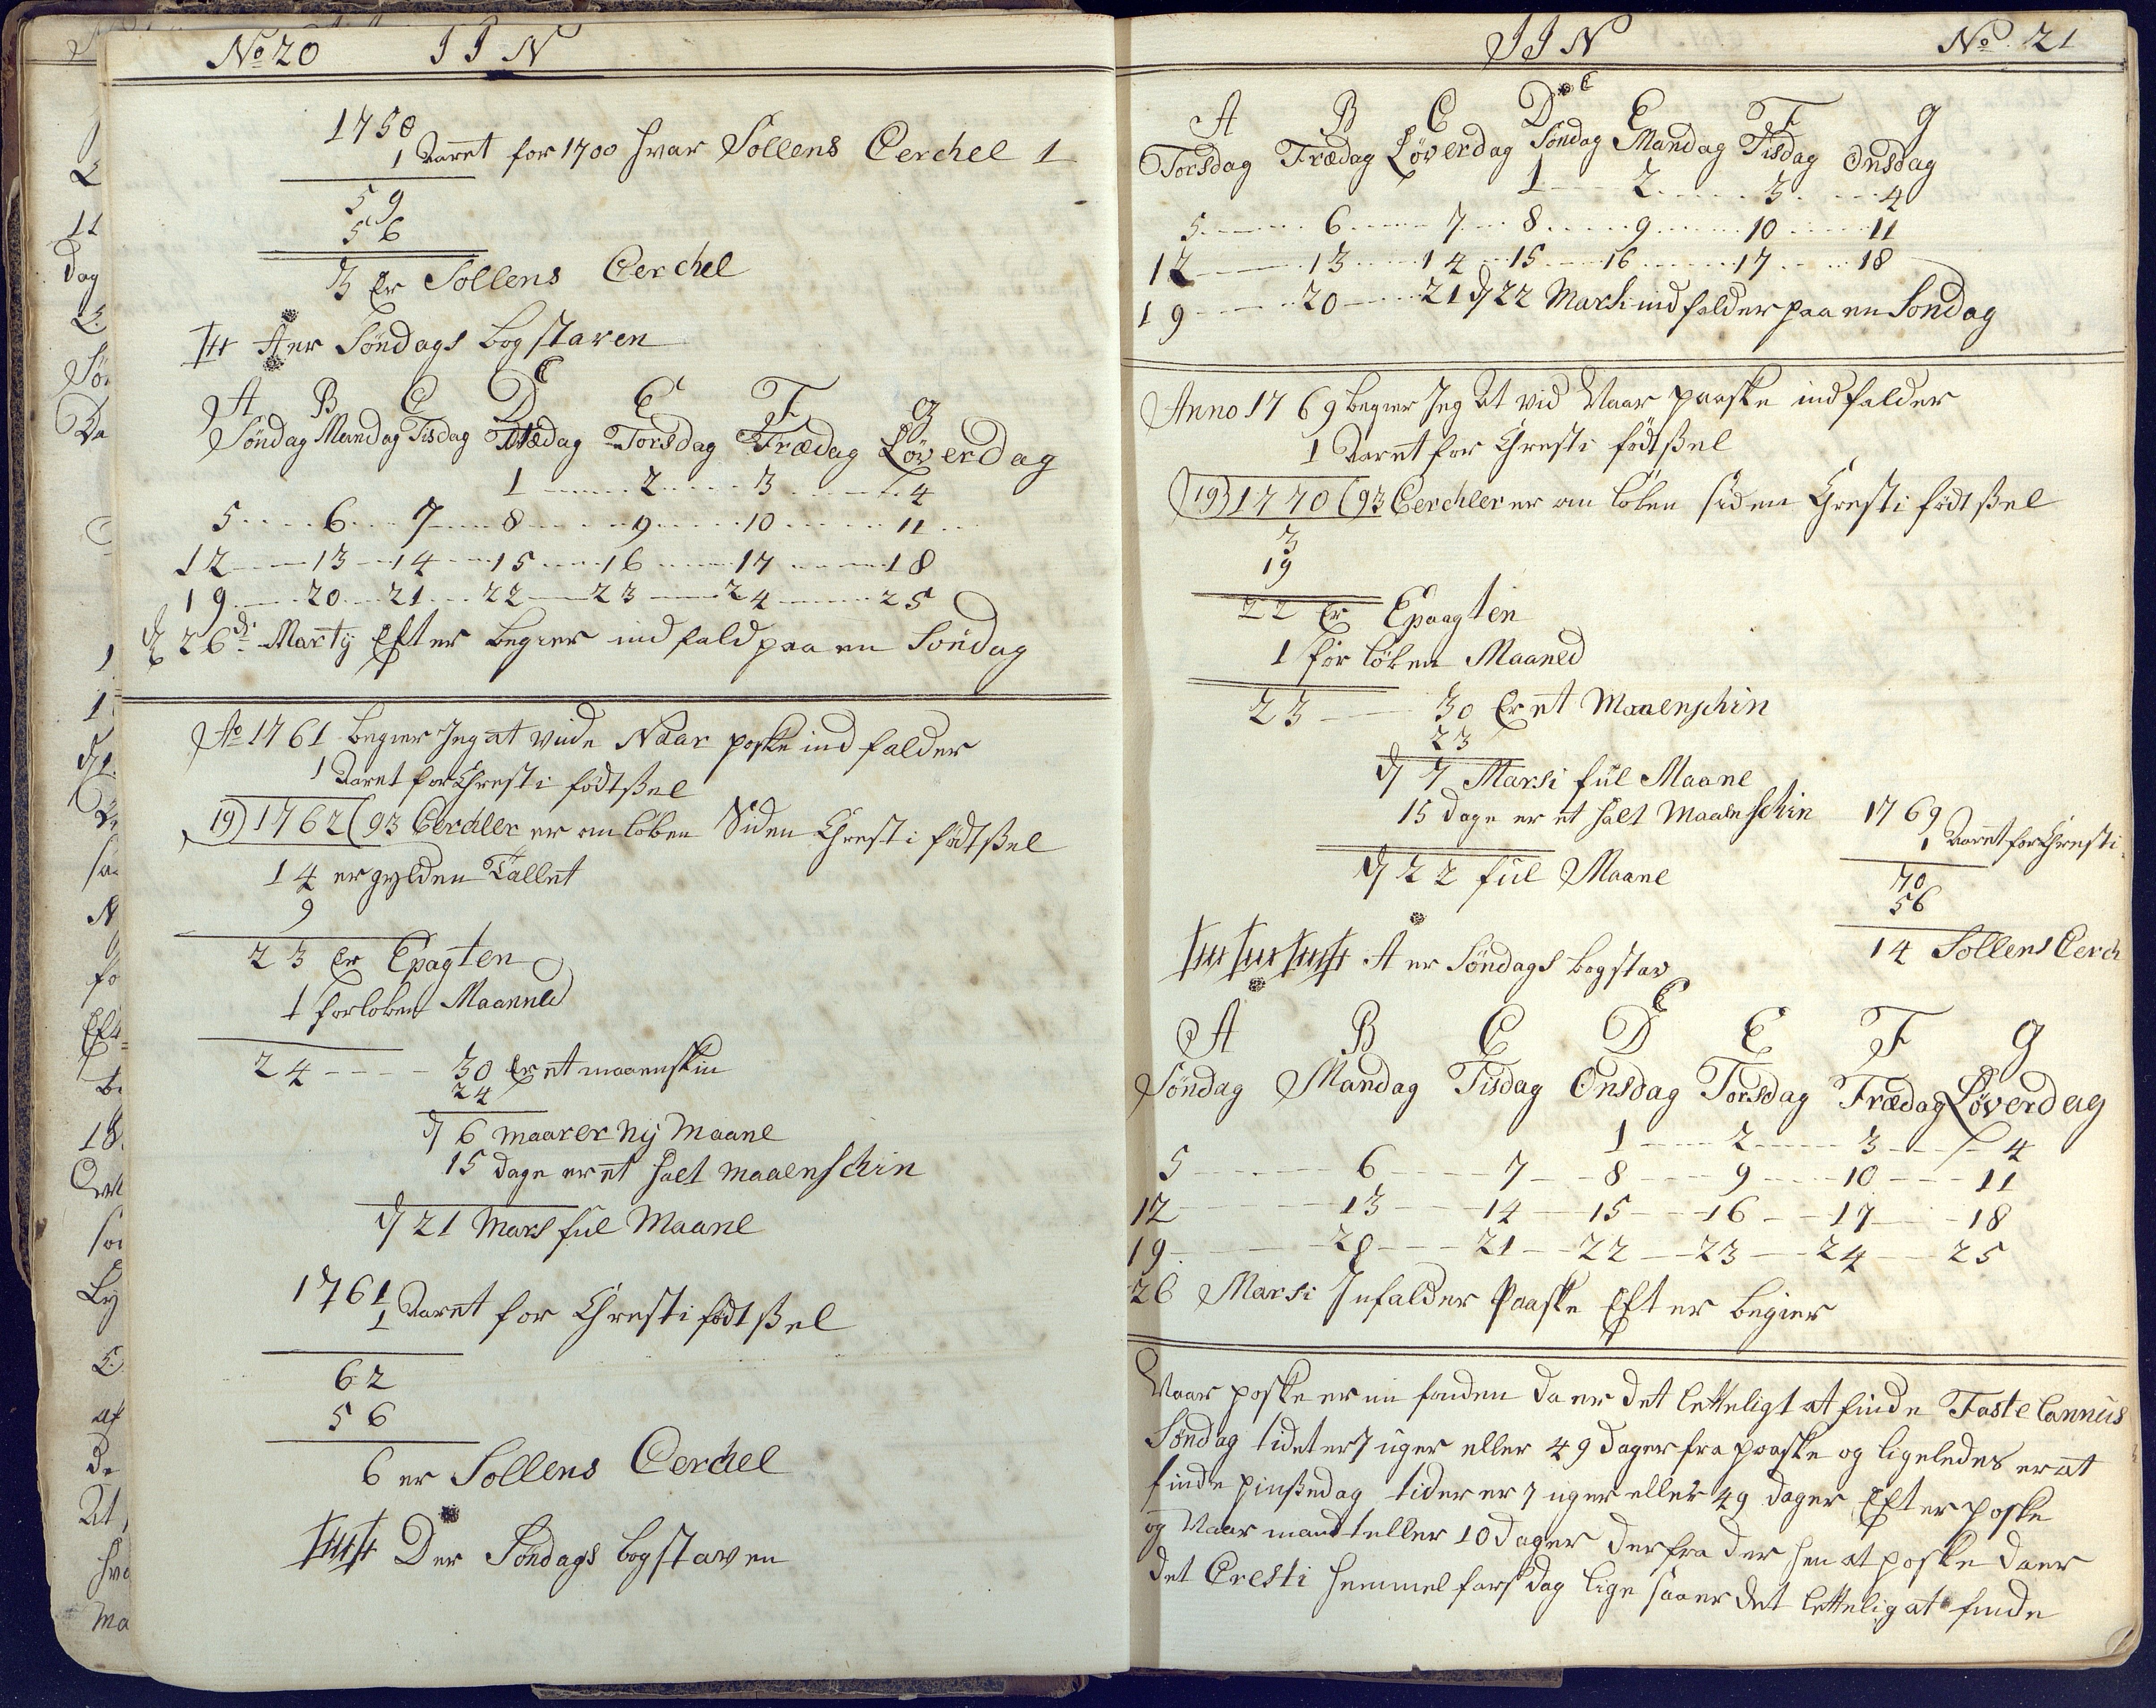 No 20 IIN
1758
1 Aaret for 1700 hvar Sollens Cerchel 1
59
56
3 Er Sollens Cerchel
A er Søndags bogstaven
C
A B C D E F g
Søndag Mandag Tisdag Onsdag Torsdag Frædag Løverdag
1 2 3 4
5 6 7 8 9 10 11
12 13 14 15 16 17 18
19 20 21 22 23 24 25
d 26de Martij Efter begier ind fald paa en Søndag
Ao 1761 begier Jeg at vide Naar poske ind falder
1 Aaret for Chresti fødtßel
19) 1762 (93 Cerchler er om loben Siden Chresti fødtßel
14 er gylden Tallet
9
23 Er Epagten
1 forloben Maanned
24 30 Er et maaenskin
24
d 6 maar er nij Maane
15 dage er et halt maaenschin
d 21 Mars ful Maane
1761
1 Aaret for Chresti fødtßel
62
56
6 er Sollens Cerchel
D er Søndags bogstaven
IIN No. 21
C
A B C D E F g
Torsdag Frædag Løverdag Søndag Mandag Tisdag Onsdag
1 2 3 4
5 6 7 8 9 10 11
12 13 14 15 16 17 18
19 20 21 d 22 Marsi ind falder paa en Søndag
Anno 1769 begier Jeg at vid Naar paaske ind falder
1 Aaret for Chresti fødtßel
19) 1770 (93 Cerchler er om loben siden Chresti fødtßel
3
19
22 Er Epaagten
1 for loben Maaned
23 30 Er et Maaenschin
23
d 7 Marsi ful Maane
15 dage er et halt Maaenschin
d 22 ful Maane
1769
1 Aaret for Chresti
70
56
14 Sollens Cerch
A er Søndags bogstav
C
A B C D E F g
Søndag Mandag Tisdag Onsdag Torsdag Frædag Løverdag
1 2 3 4
5 6 7 8 9 10 11
12 13 14 15 16 17 18
19 20 21 22 23 24 25
26 Marsi Infalder Paaske Efter begier
Naar poske er nu fonden da er det letteligt at finde Fastelannus
Søndag tidet er 7 uger eller 49 dager fra paaske og ligeledes er at
finde pinßedag tider er 7 uger eller 49 dager Efter poske
og Naar mand teller 10 dager der fra der hen at poske da er
det Cresti hemmelfars dag lige saa er det letteligt at finde